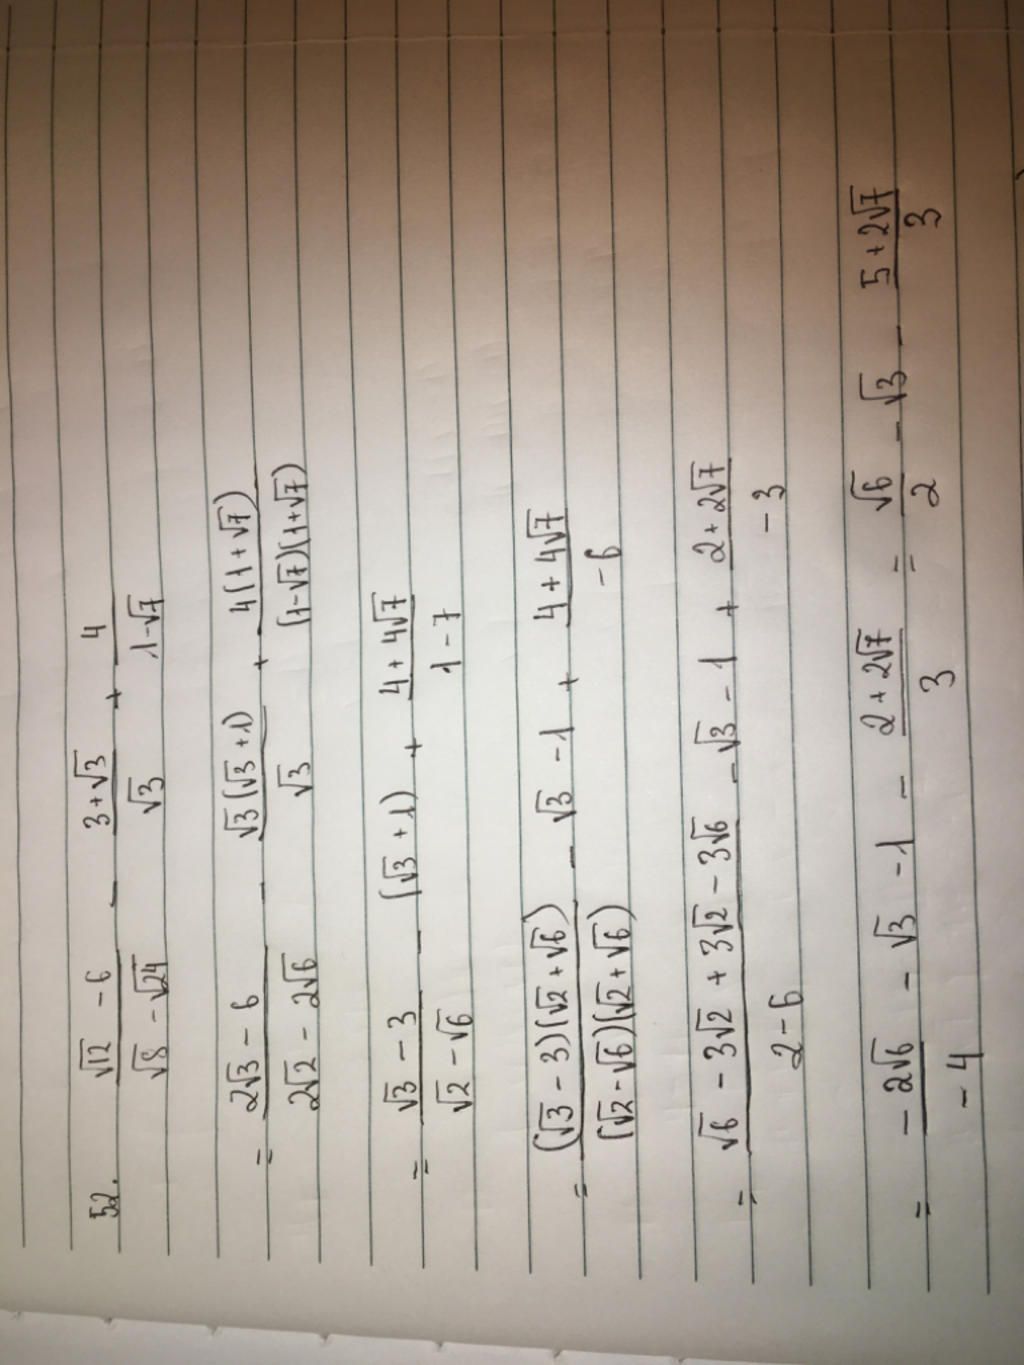 52. (√12 - 6)/(√8 - √24) - (3+√3)/√3 + 4/(1-√7)
= (2√3 - 6)/(2√2 - 2√6) - √3(√3+1)/√3 + 4(1+√7)/((1-√7)(1+√7))
= (√3 - 3)/(√2 - √6) - (√3+1) + (4+4√7)/(1-7)
= (√3 - 3)(√2+√6)/((√2-√6)(√2+√6)) - √3 - 1 + (4+4√7)/-6
= (√6 - 3√2 + 3√2 - 3√6)/(2-6) - √3 - 1 + (2+2√7)/-3
= (-2√6)/-4 - √3 - 1 - (2+2√7)/3 = √6/2 - √3 - (5+2√7)/3